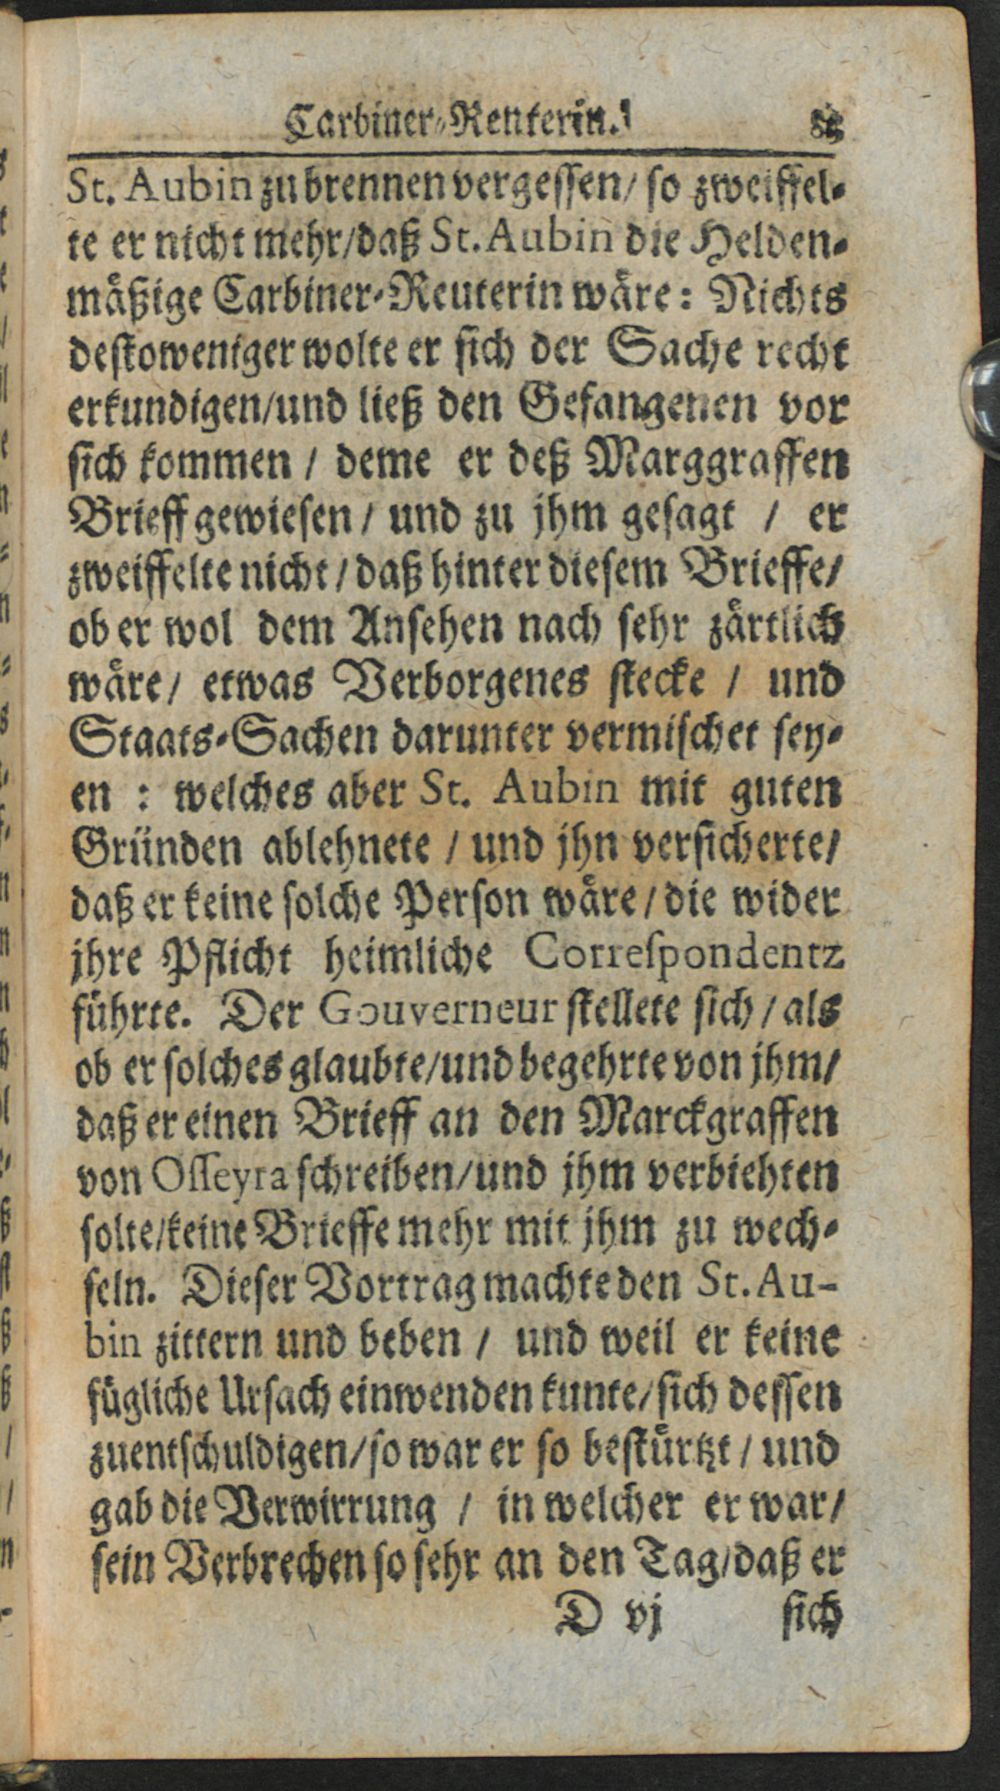 Carbiner-Reuterin.
St. Aubin zu brennen vergessen/ so zweiffel-
te er nicht mehr/daß St. Aubin die Helden-
mäßige Carbiner-Reuterin wäre: Nichts
destoweniger wolte er sich der Sache recht
erkundigen/und ließ den Gefangenen vor
sich kommen / deme er deß Marggraffen
Brieff gewiesen / und zu jhm gesagt / er
zweiffelte nicht / daß hinter diesem Brieffe/
ob er wol dem Ansehen nach sehr zärtlich
wäre/ etwas Verborgenes stecke / und
Staats-Sachen darunter vermischet sey-
en : welches aber St. Aubin mit guten
Gründen ablehnete / und jhn versicherte/
daß er keine solche Person wäre / die wider
jhre Pflicht heimliche Correspondentz
führte. Der Gouverneur stellete sich / als
ob er solches glaubte/und begehrte von jhm/
daß er einen Brieff an den Marckgraffen
von Osseyra schreiben/und jhm verbiehten
solte/keine Brieffe mehr mit jhm zu wech-
seln. Dieser Vortrag machte den St. Au-
bin zittern und beben / und weil er keine
fügliche Ursach einwenden kunte/sich dessen
zuentschuldigen/so war er so bestürtzt / und
gab die Verwirrung / in welcher er war/
sein Verbrechen so sehr an den Tag/daß er
D vj sich